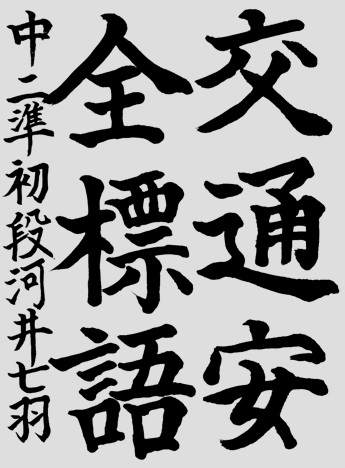 交通安
全標語
中二準初段河井七羽